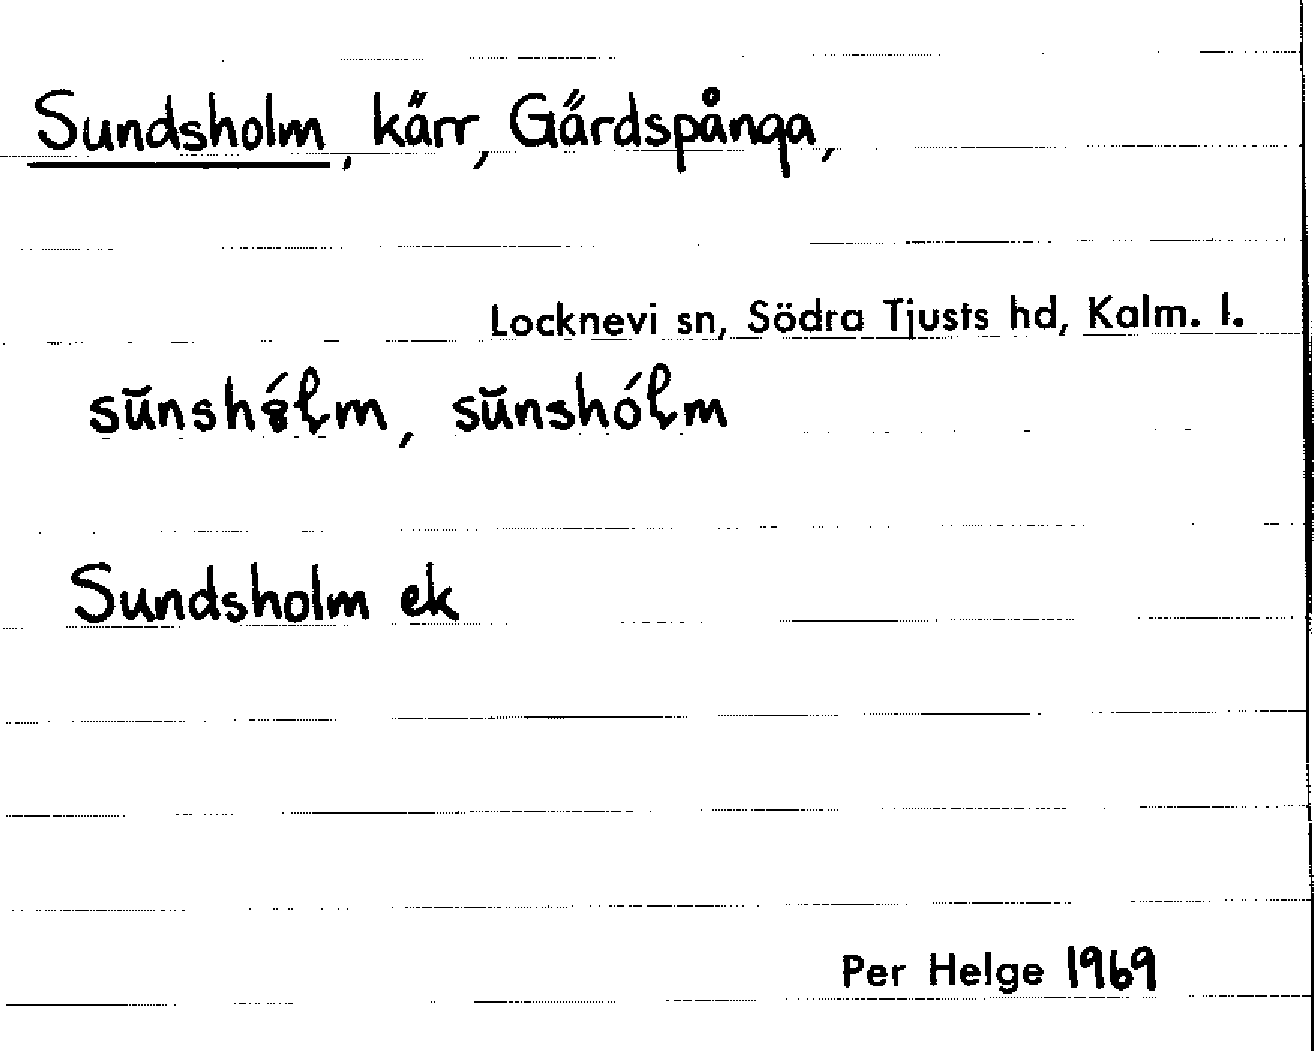 Sundsholm, kärr, Gärdspånga,
Locknevi sn, Södra Tjusts hd, Kalm. l.
sŭnshólm, sŭnshólm
Sundsholm ek
Per Helge 1969